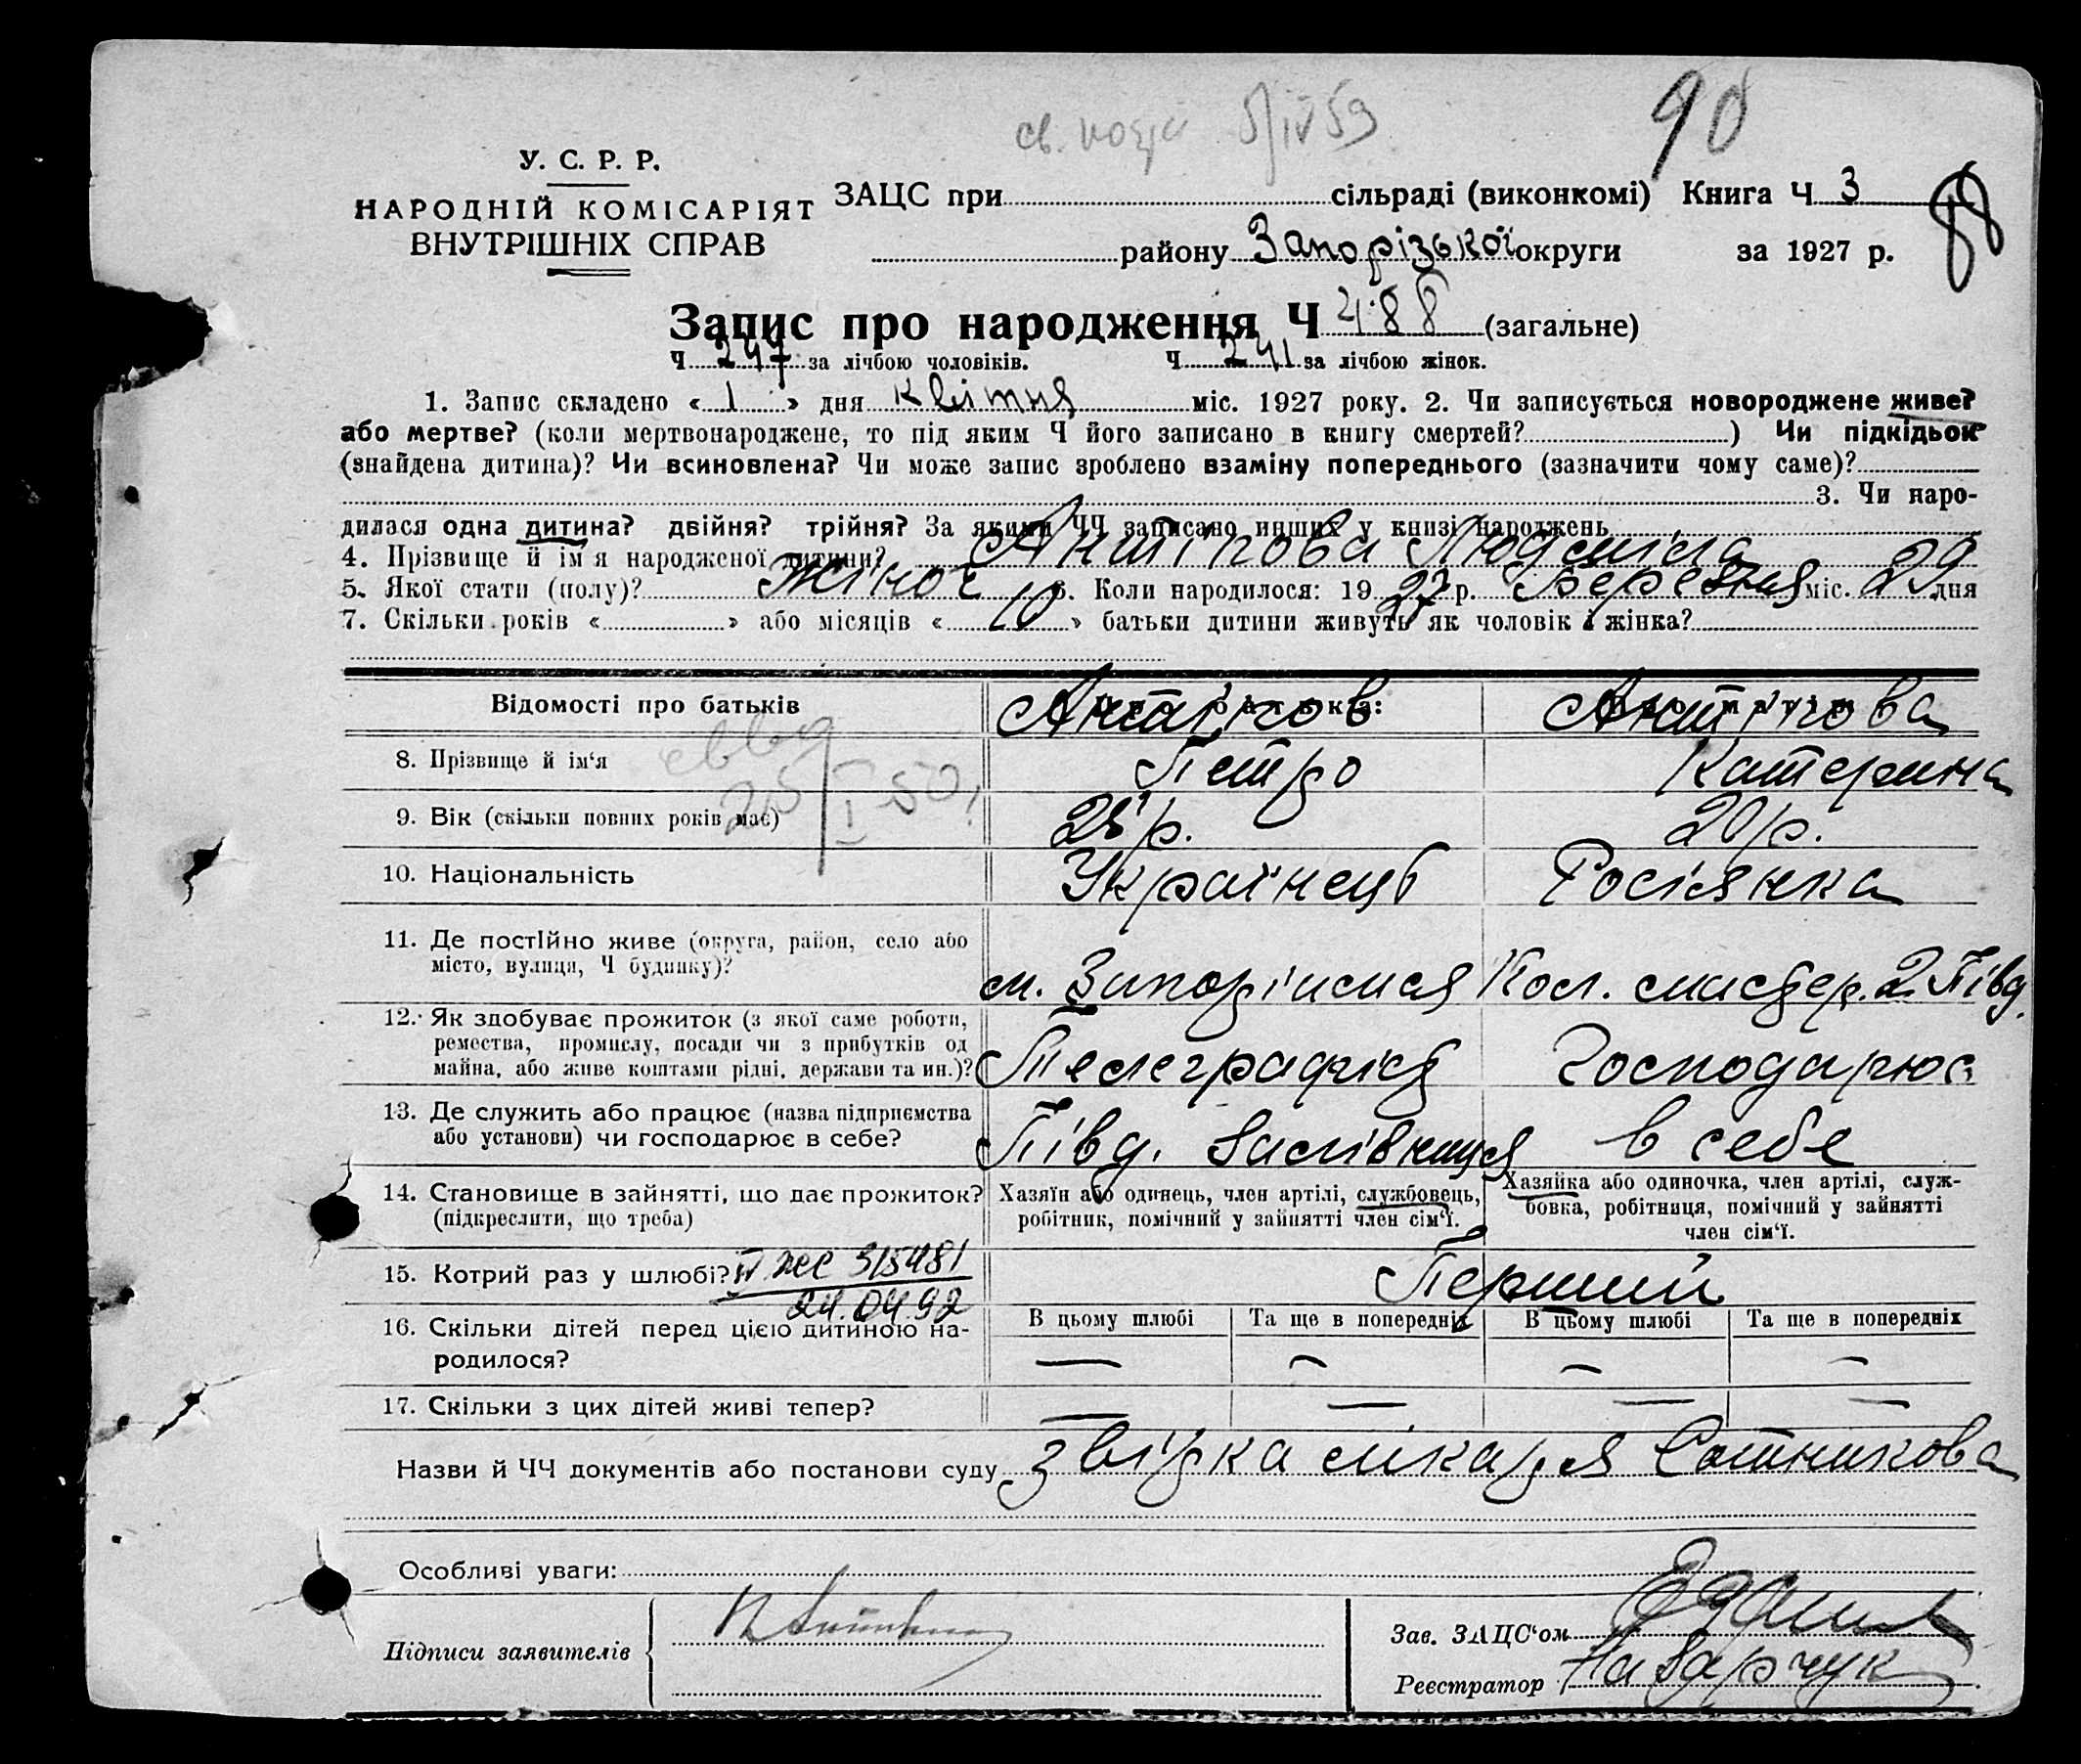 90
5/IV 59
У. С. Р. Р.
НАРОДНІЙ КОМІСАРІЯТ
ВНУТРІШНІХ СПРАВ
ЗАЦС при сільраді (виконкомі) Книга Ч 3
88
району Запорізької округи за 1927 р.
Запис про народження Ч 488 (загальне)
Ч 247 за лічбою чоловіків. Ч 241 за лічбою жінок.
1. Запис складено « 1 » дня квітня міс. 1927 року. 2. Чи записується новороджене живе?
або мертве? (коли мертвонароджене, то під яким Ч його записано в книгу смертей? ) Чи підкідьок
(знайдена дитина)? Чи всиновлена? Чи може запис зроблено взаміну попереднього (зазначити чому саме)?
3. Чи наро-
дилася одна дитина? двійня? трійня? За якими ЧЧ записано инших у книзі народжень
4. Прізвище й ім'я народженої дитини? Антіпова Людміла
5. Якої стати (полу)? жіноч 6. Коли народилося: 19 27 р. Березня міс. 29 дня
7. Скільки років « » або місяців « 10 » батьки дитини живуть як чоловік і жінка?
Відомості про батьків Антіпов Антіпова
8. Прізвище й ім'я Петро Катерина
25/I 50
9. Вік (скільки повних років має) р. 20 р.
10. Національність Українець Росіянка
11. Де постійно живе (округа, район, село або
місто, вулиця, Ч будинку)? м. Запоріжжя Кол. 2. Півд.
12. Як здобуває прожиток (з якої саме роботи,
ремества, промислу, посади чи з прибутків од
майна, або живе коштами рідні, держави та ин.)? Телеграфіст Господарює
13. Де служить або працює (назва підприємства
або установи) чи господарює в себе? Півд. Залізниця в себе
14. Становище в зайнятті, що дає прожиток?
(підкреслити, що треба)
Хазяїн або одинець, член артілі, службовець,
робітник, помічний у зайнятті член сім'ї.
Хазяйка або одиночка, член артілі, служ-
бовка, робітниця, помічний у зайнятті
член сім'ї.
15. Котрий раз у шлюбі? Перший
315481
24.04.92
В цьому шлюбі Та ще в попередніх В цьому шлюбі Та ще в попередніх
16. Скільки дітей перед цією дитиною на-
родилося? — — — —
17. Скільки з цих дітей живі тепер? — — — —
Назви й ЧЧ документів або постанови суду звірка лікаря Сотникова
Особливі уваги:
Підписи заявителів
Зав. ЗАЦС'ом
Реєстратор Назарчук